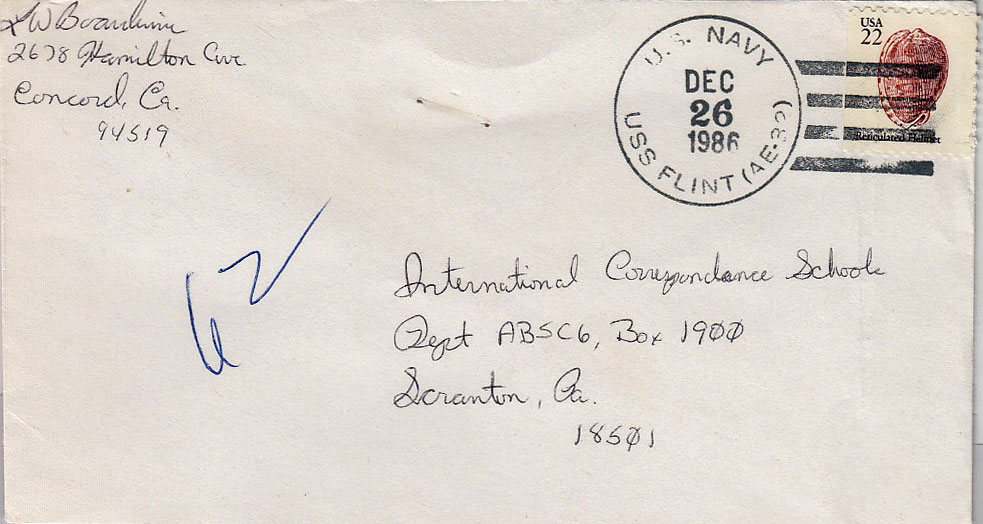 2678 Hamilton Ave
Concord, Ca.
94519
U.S. NAVY
DEC
26
1986
USS FLINT (AE-32)
USA
22
Reticulated Helmet
62
International Correspondence Schools
Dept ABSC6, Box 1900
Scranton, Pa.
18501